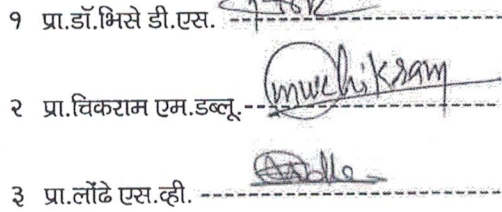 १ प्रा.डॉ.भिसे डी.एस. --------------------
२ प्रा.चिकराम एम.डब्लू.-- mwchikram
३ प्रा.लोंढे एस.व्ही. --------------------